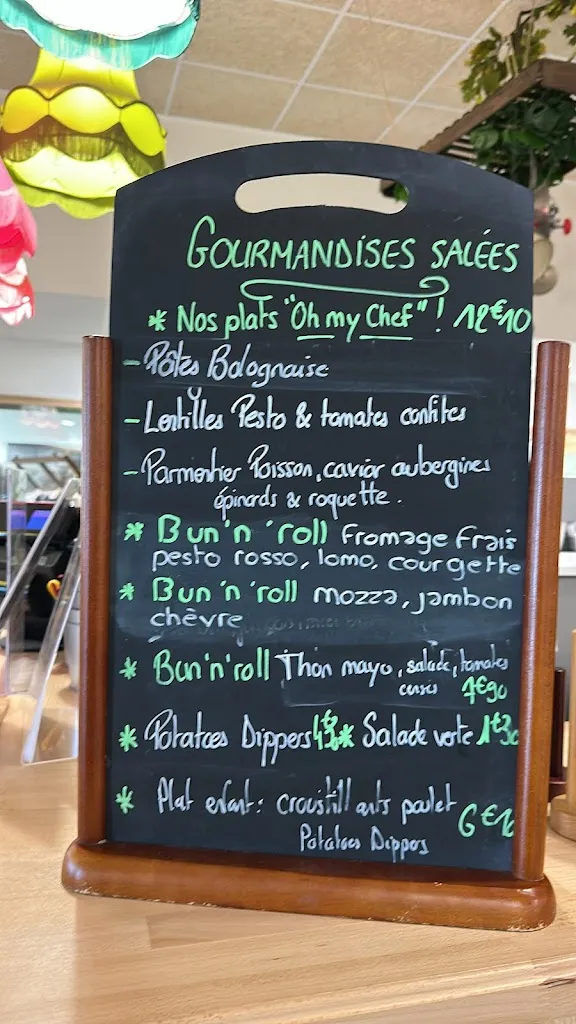 GOURMANDISES SALÉES
* Nos plats "Oh my Chef" ! 12€10
- Pâtes Bolognaise
- Lentilles Pesto & tomates confites
- Parmentier Poisson, caviar aubergines
épinards & roquette.
* Bun'n'roll fromage frais
pesto rosso, lomo, courgette
* Bun'n'roll mozza, jambon
chèvre
* Bun'n'roll Thon mayo, salade, tomates
7€90
* Potatoes Dippers * Salade verte 1€30
* Plat enfant: croustillants poulet
6€10
Potatoes Dippers